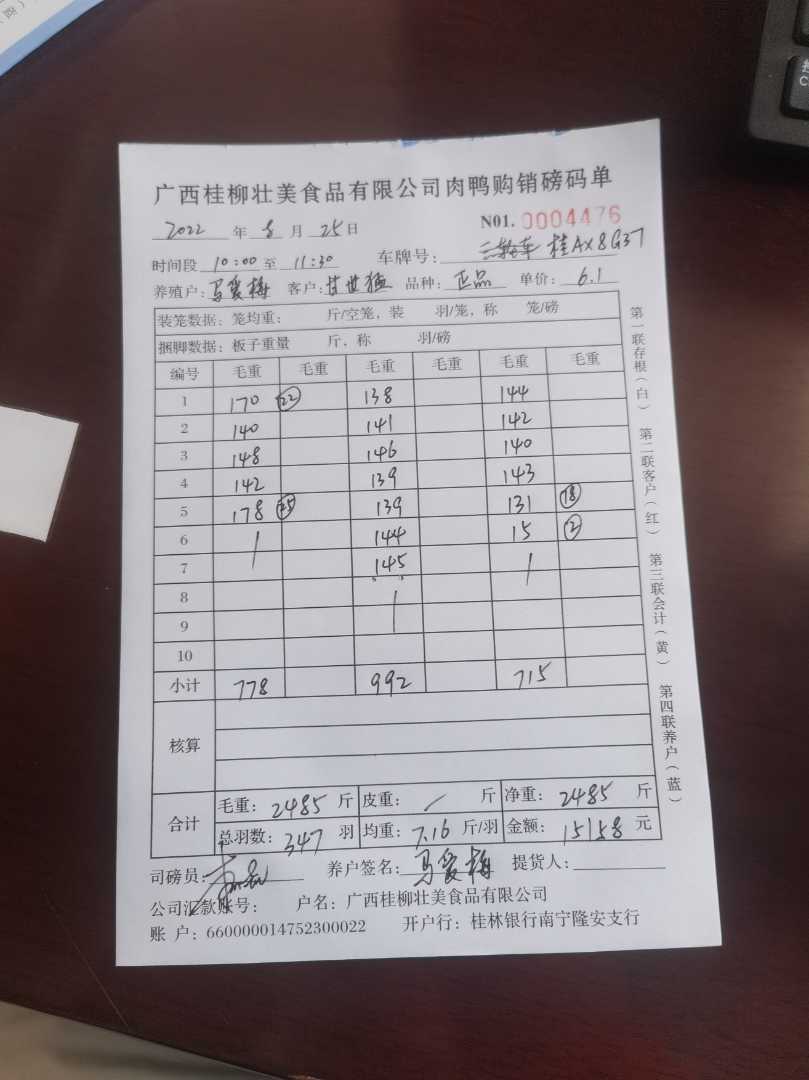 广西桂柳壮美食品有限公司肉鸭购销磅码单
2022 年 8 月 25 日 N01. 0004476
时间段 10:00 至 11:30 车牌号: 三轮车 桂AX8G37
养殖户: 马爱梅 客户: 甘世猛 品种: 正品 单价: 6.1
装笼数据: 笼均重: 斤/空笼, 装 羽/笼, 称 笼/磅
捆脚数据: 板子重量 斤, 称 羽/磅
编号 毛重 毛重 毛重 毛重 毛重 毛重
1 170 22 138 144
2 140 141 142
3 148 146 140
4 142 139 143
5 178 25 139 131 18
6 / 144 15 2
7 145 /
8 /
9
10
小计 778 992 715
核算
合计 毛重: 2485 斤 皮重: / 斤 净重: 2485 斤
总羽数: 347 羽 均重: 7.16 斤/羽 金额: 15158 元
司磅员: 养户签名: 马爱梅 提货人:
公司汇款账号: 户名: 广西桂柳壮美食品有限公司
账 户: 660000014752300022 开户行: 桂林银行南宁隆安支行
第一联存根(白) 第二联客户(红) 第三联会计(黄) 第四联养户(蓝)